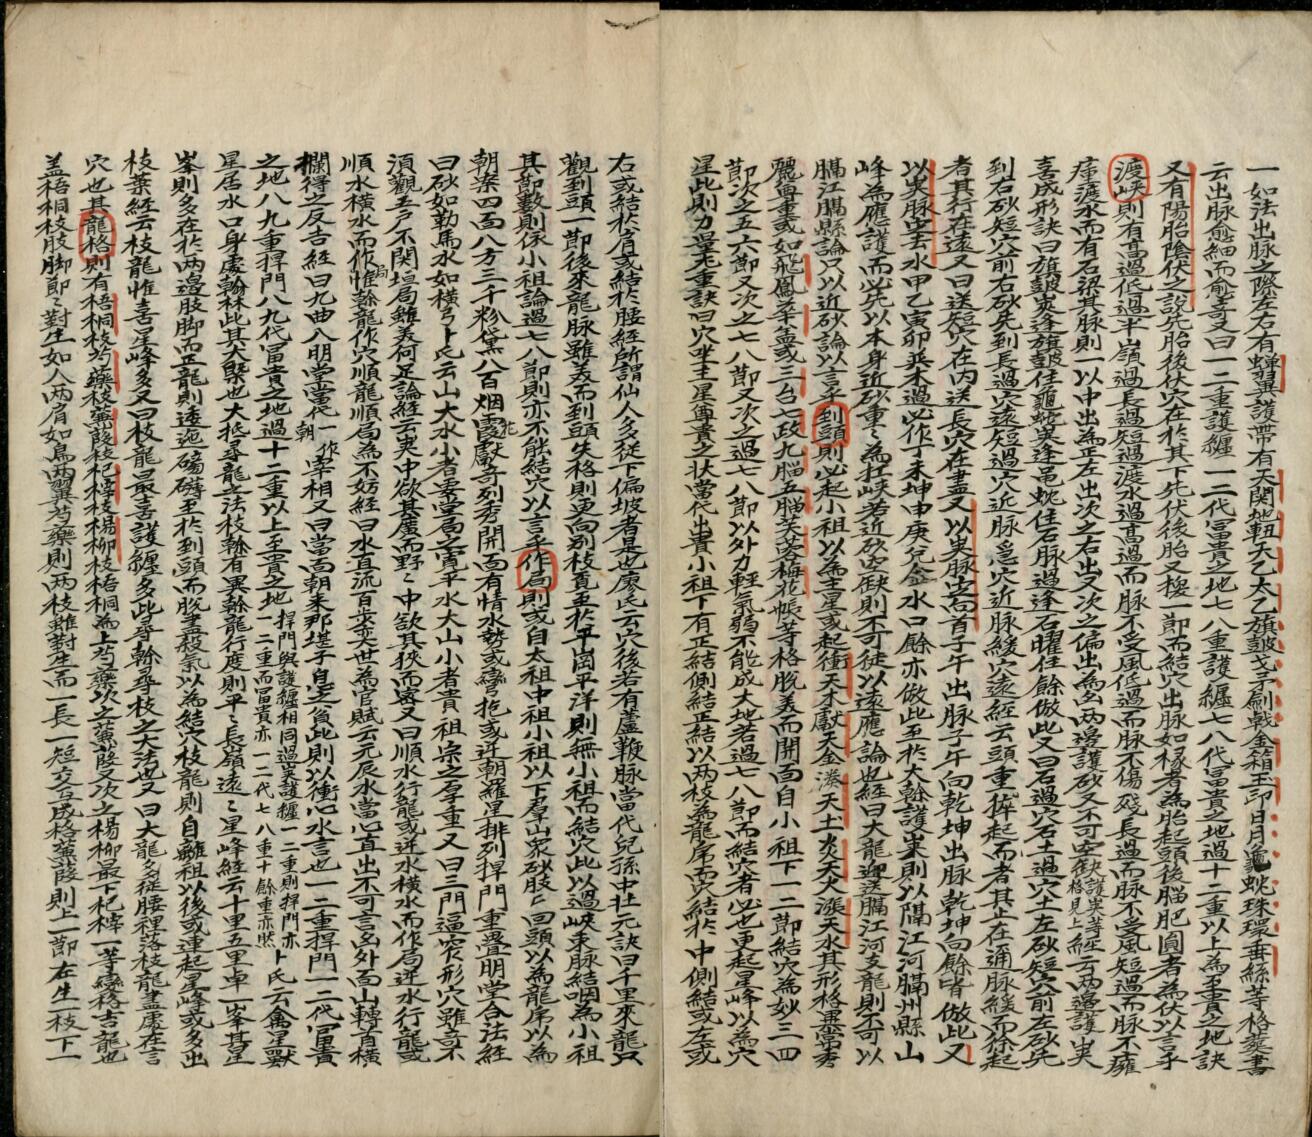 一如法出脉之際左右有蟬翼護帶有天関地軸天乙太乙旗皷戈予剮戟金箱玉印日月龜蛇珠環垂絲等格葬書
云出脉愈細而愈奇又曰一二重護纏一二代冨貴之地七八重護纏七八代冨貴之地過十二重以上為至貴之地訣
又有陽胎陰伏之說先胎後伏穴在於其下先伏後胎又梭一節而結穴出脉如椽者為胎起頭後腦肥圓者為伏以言乎
渡峽則有高過低過半嶺過長過短過渡水過高過而脉不受風低過而脉不傷殘長過而脉不受風短過而脉不癰
瘇渡水而有石梁其脉則一以中出為正左出次之右出又次之偏出為凶两邉護砂又不可空缺護峽等格見上經云两邉護峽
喜成形訣曰旗皷峽逢旗皷住龜蛇峽逢黽蛇住石脉過逢石曜住餘倣此又曰石過穴石土過穴土左砂短穴前左砂先
到右砂短穴前右砂先到長過穴遠短過穴近脉急穴近脉緩穴遠經云頭重猝起而者其止在通脉緩而徐起
者其行在遠又曰送短穴在内送長穴在盡又以峽脉之向首子午出脉子午向乾坤出脉乾坤向餘皆倣此又
以峽脉出去水甲乙寅卯巽木過必作丁未坤申庚兌金水口餘亦倣此至於大幹護峽則以隔江河隔州縣山
峰為應護而必先以本身近砂重〻為扛峽若近砂空缺則不可徒以遠應論也經曰大龍迎送隔江河支龍則不可以
隔江隔縣論只以近砂論以言乎到頭則必起小祖以為主星或起衝天木獻天金湊天土炎天火漲天水其形格異常秀
麗尊重或如飛鳳華盖或三台七政九腦五腦芙蓉梅花帳等格脫美而開面自小祖下一二節結穴為妙三四
節次之五六節又次之七八節又次之過七八節以外力輕氣弱不能成大地若過七八節而結穴者必也更起星峰以為穴
星此則力量尤重訣曰穴坐主星尊貴之状當代出貴小祖下有正結側結正結以两枝為龍虎而穴結於中側結或左或
右或結於肩或結於腰經所謂仙人多從下偏坡者是也廖氏云穴後若有蘆鞭脉當代兒孫中壮元訣曰千里來龍只
觀到頭一節後來龍脉雖美而到頭失格則更向別枝覓至於平崗平洋則無小祖而結穴此以過峽束脉結咽為小祖
其節數則依小祖論過七八節則亦不能結穴以言乎作局則或自太祖中祖小祖以下群山衆砂股〻回頭以為龍虎以為
朝案四面八方三千粉黛八百烟花獻奇列秀開面有情水勢或彎抱或迎朝羅星排列捍門重疊明堂合法經
曰砂如勒馬水如横弓卜氏云山大水小者要堂局之寬平水大山小者貴祖宗之厚重又曰三門逼窄形穴雖奇不
湏觀五戶不関垣局雖美何足論經云峽中欲其廣而野〻中欲其狹而密又曰順水行龍或逆水横水而作局逆水行龍或
順水横水而作局惟幹龍作穴順龍順局為不妨經曰水直流百步奕世為官賦云元辰水當心直出不可言凶外面山轉首横
攔得之反吉經曰九曲八明堂當代一作朝宰相又曰當面朝來那堪子息貧此則以衝心水言也一二重捍門一二代冨貴
之地八九重捍門八九代冨貴之地過十二重以上至貴之地捍門與護纏相同過峽護纏一二重則捍門亦一二重而冨貴亦一二代七八重十餘重亦然卜氏云禽星獸
星居水口身處翰林此其大槩也大抵尋龍之法枝幹有異幹龍行度則平〻長嶺遠〻星峰經云十里五里卓一峯其星
峯則多在於两邊肢脚而正龍則逶迤磅礡至於到頭而脫盡殺氣以為結穴枝龍則自離祖以後或連起星峰或多出
枝葉經云枝龍惟喜星峰多又曰枝龍最喜護纏多此尋幹尋枝之大法也又曰大龍多從腰裡落枝龍盡處在言
穴也其龍格則有梧桐枝芍藥枝蒹葭枝杞梓枝楊柳枝梧桐為上芍藥次之蒹葭又次之楊柳最下杞梓一等變格吉龍也
盖梧桐枝肢脚節〻對生如人两肩如鳥两翼芍藥則两枝雖對生而一長一短交互成格蒹葭則上一節左生一枝下一